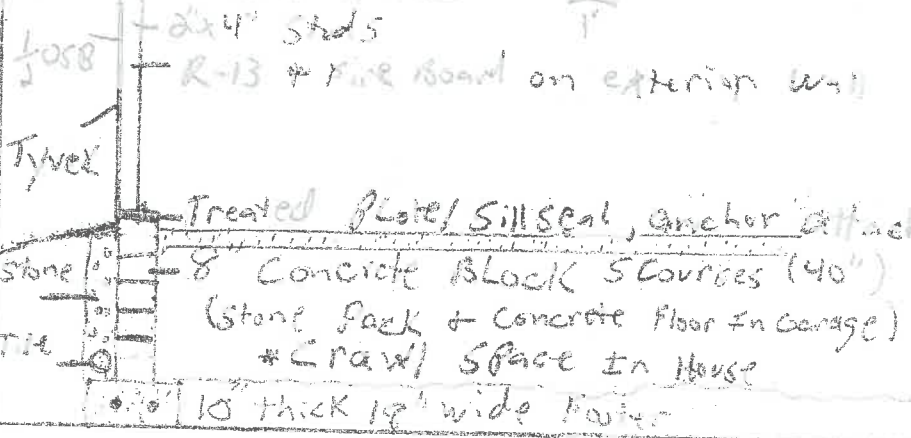 2x4" studs
1'
1/2 OSB
R-13 + Fire Board on exterior wall
Tyvek
Treated Plate/Sillseal, anchor
Stone
8" Concrete Block 5 Courses (40")
(Stone Pack + Concrete Floor In Garage)
Tile
*Crawl Space In House
10" thick 18" wide Footer